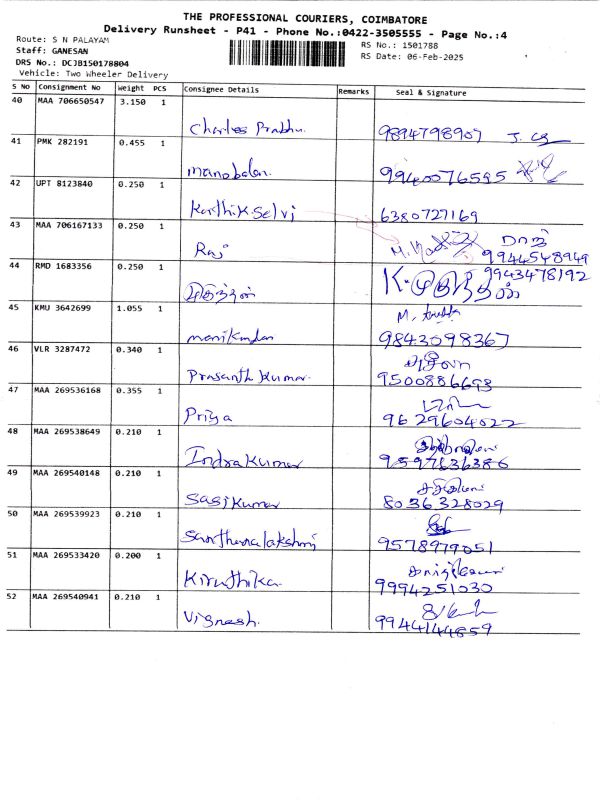 THE PROFESSIONAL COURIERS, COIMBATORE
Delivery Runsheet - P41 - Phone No.:0422-3505555 - Page No.:4
Route: S N PALAYAM
Staff: GANESAN
DRS No.: DCJB150178804
Vehicle: Two Wheeler Delivery
RS No.: 1501788
RS Date: 06-Feb-2025
S No Consignment No Weight PCS Consignee Details Remarks Seal & Signature
40 MAA 706650547 3.150 1
Charles Prabhu. 9894798907
41 PMK 282191 0.455 1
manobalan. 9940076595
42 UPT 8123840 0.250 1
Karthik Selvi 6380727169
43 MAA 706167133 0.250 1
ராஜ்
Raj 9944548949
44 RMD 1683356 0.250 1 9943478192
K. முகுந்தன்
முகுந்தன்
45 KMU 3642699 1.055 1
manikandan 9843098367
46 VLR 3287472 0.340 1
Prasanth Kumar. 9500886693
47 MAA 269536168 0.355 1
Priya 9629604022
48 MAA 269538649 0.210 1
Indrakumar 9597636386
49 MAA 269540148 0.210 1
Sasikumar 8036328029
50 MAA 269539923 0.210 1
Santhanalakshmi 9578979051
51 MAA 269533420 0.200 1
Kiruthika. 9994251030
52 MAA 269540941 0.210 1
Vignesh. 9944144859